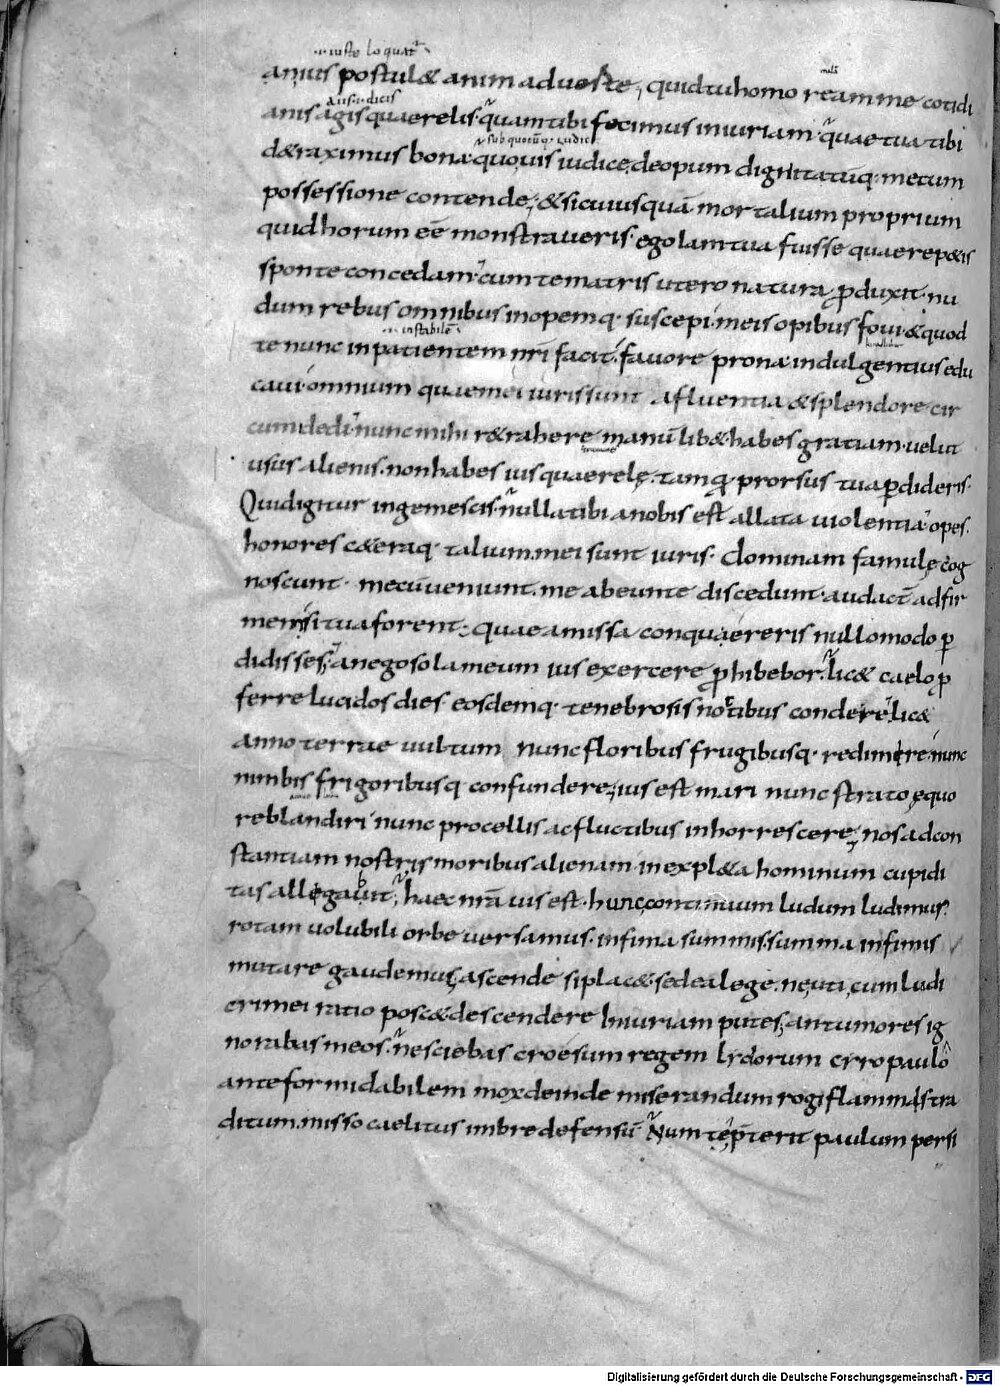 .i. iuste loquat̄
an ius postul& animaduerte; quid tu homo ream me cotidi
.i. dicis
anis agis quaerelis. quam tibi fecimus iniuriam. quae tua tibi
sub quocūq. iudice
d&raximus bona. quouis iudice, de opum dignitatūq. mecum
possessione contende; & si cuiusquā mortalium proprium
quid horum eē monstraueris. ego iam tua fuisse quae rep&is
sponte concedam. cum te matris utero natura ꝓduxit. nu
dum rebus omnibus inopemq. suscepi. meis opibus foui. & quod
.i. instabilē
te nunc inpatientem nr̄i facit. fauore prona indulgentius edu
caui. omnium quae mei iuris sunt afluentia & splendore cir
cumdedi. nunc mihi r&rahere manū lib& habes gratiam. uelut
usus alienis. non habes ius quaerelę. tamq̄ prorsus tua ꝑdideris.
Quid igitur ingemescis. nulla tibi a nobis est allata uiolentia. opes.
honores c&eraq. talium. mei sunt iuris. dominam famulę cog
noscunt. mecū ueniunt. me abeunte discedunt. audact̄ adfir
mem si tua forent. quae amissa conquaereris nullo modo ꝑ
didisses; an ego sola meum ius exercere ꝓhibebor. lic& caelo ꝓ
ferre lucidos dies. eosdemq. tenebrosis noctibus condere. lic&
anno terrae uultum nunc floribus frugibusq. redimere. nunc
nimbis frigoribusq. confundere; ius est mari nunc strato ęquo
reblandiri nunc procellis ac fluctibus inhorrescere; nos ad con
stantiam nostris moribus alienam inexpl&a hominum cupidi
tas alligabit; haec nr̄a uis est. hunc continuum ludum ludimus.
rotam uolubili orbe uersamus. infima summis. summa infimis
mutare gaudemus; ascende si plac&. sed ea lege. ne uti, cum ludi
cri mei ratio posc& descendere iniuriam putes; an tu mores ig
norabas meos. nesciebas croesum regem lydorum cyro paulo
ante formidabilem mox deinde miserandum rogi flammis tra
ditum. misso caelitus imbre defensū. Num te p̄terit paulum persi
Digitalisierung gefördert durch die Deutsche Forschungsgemeinschaft - DFG